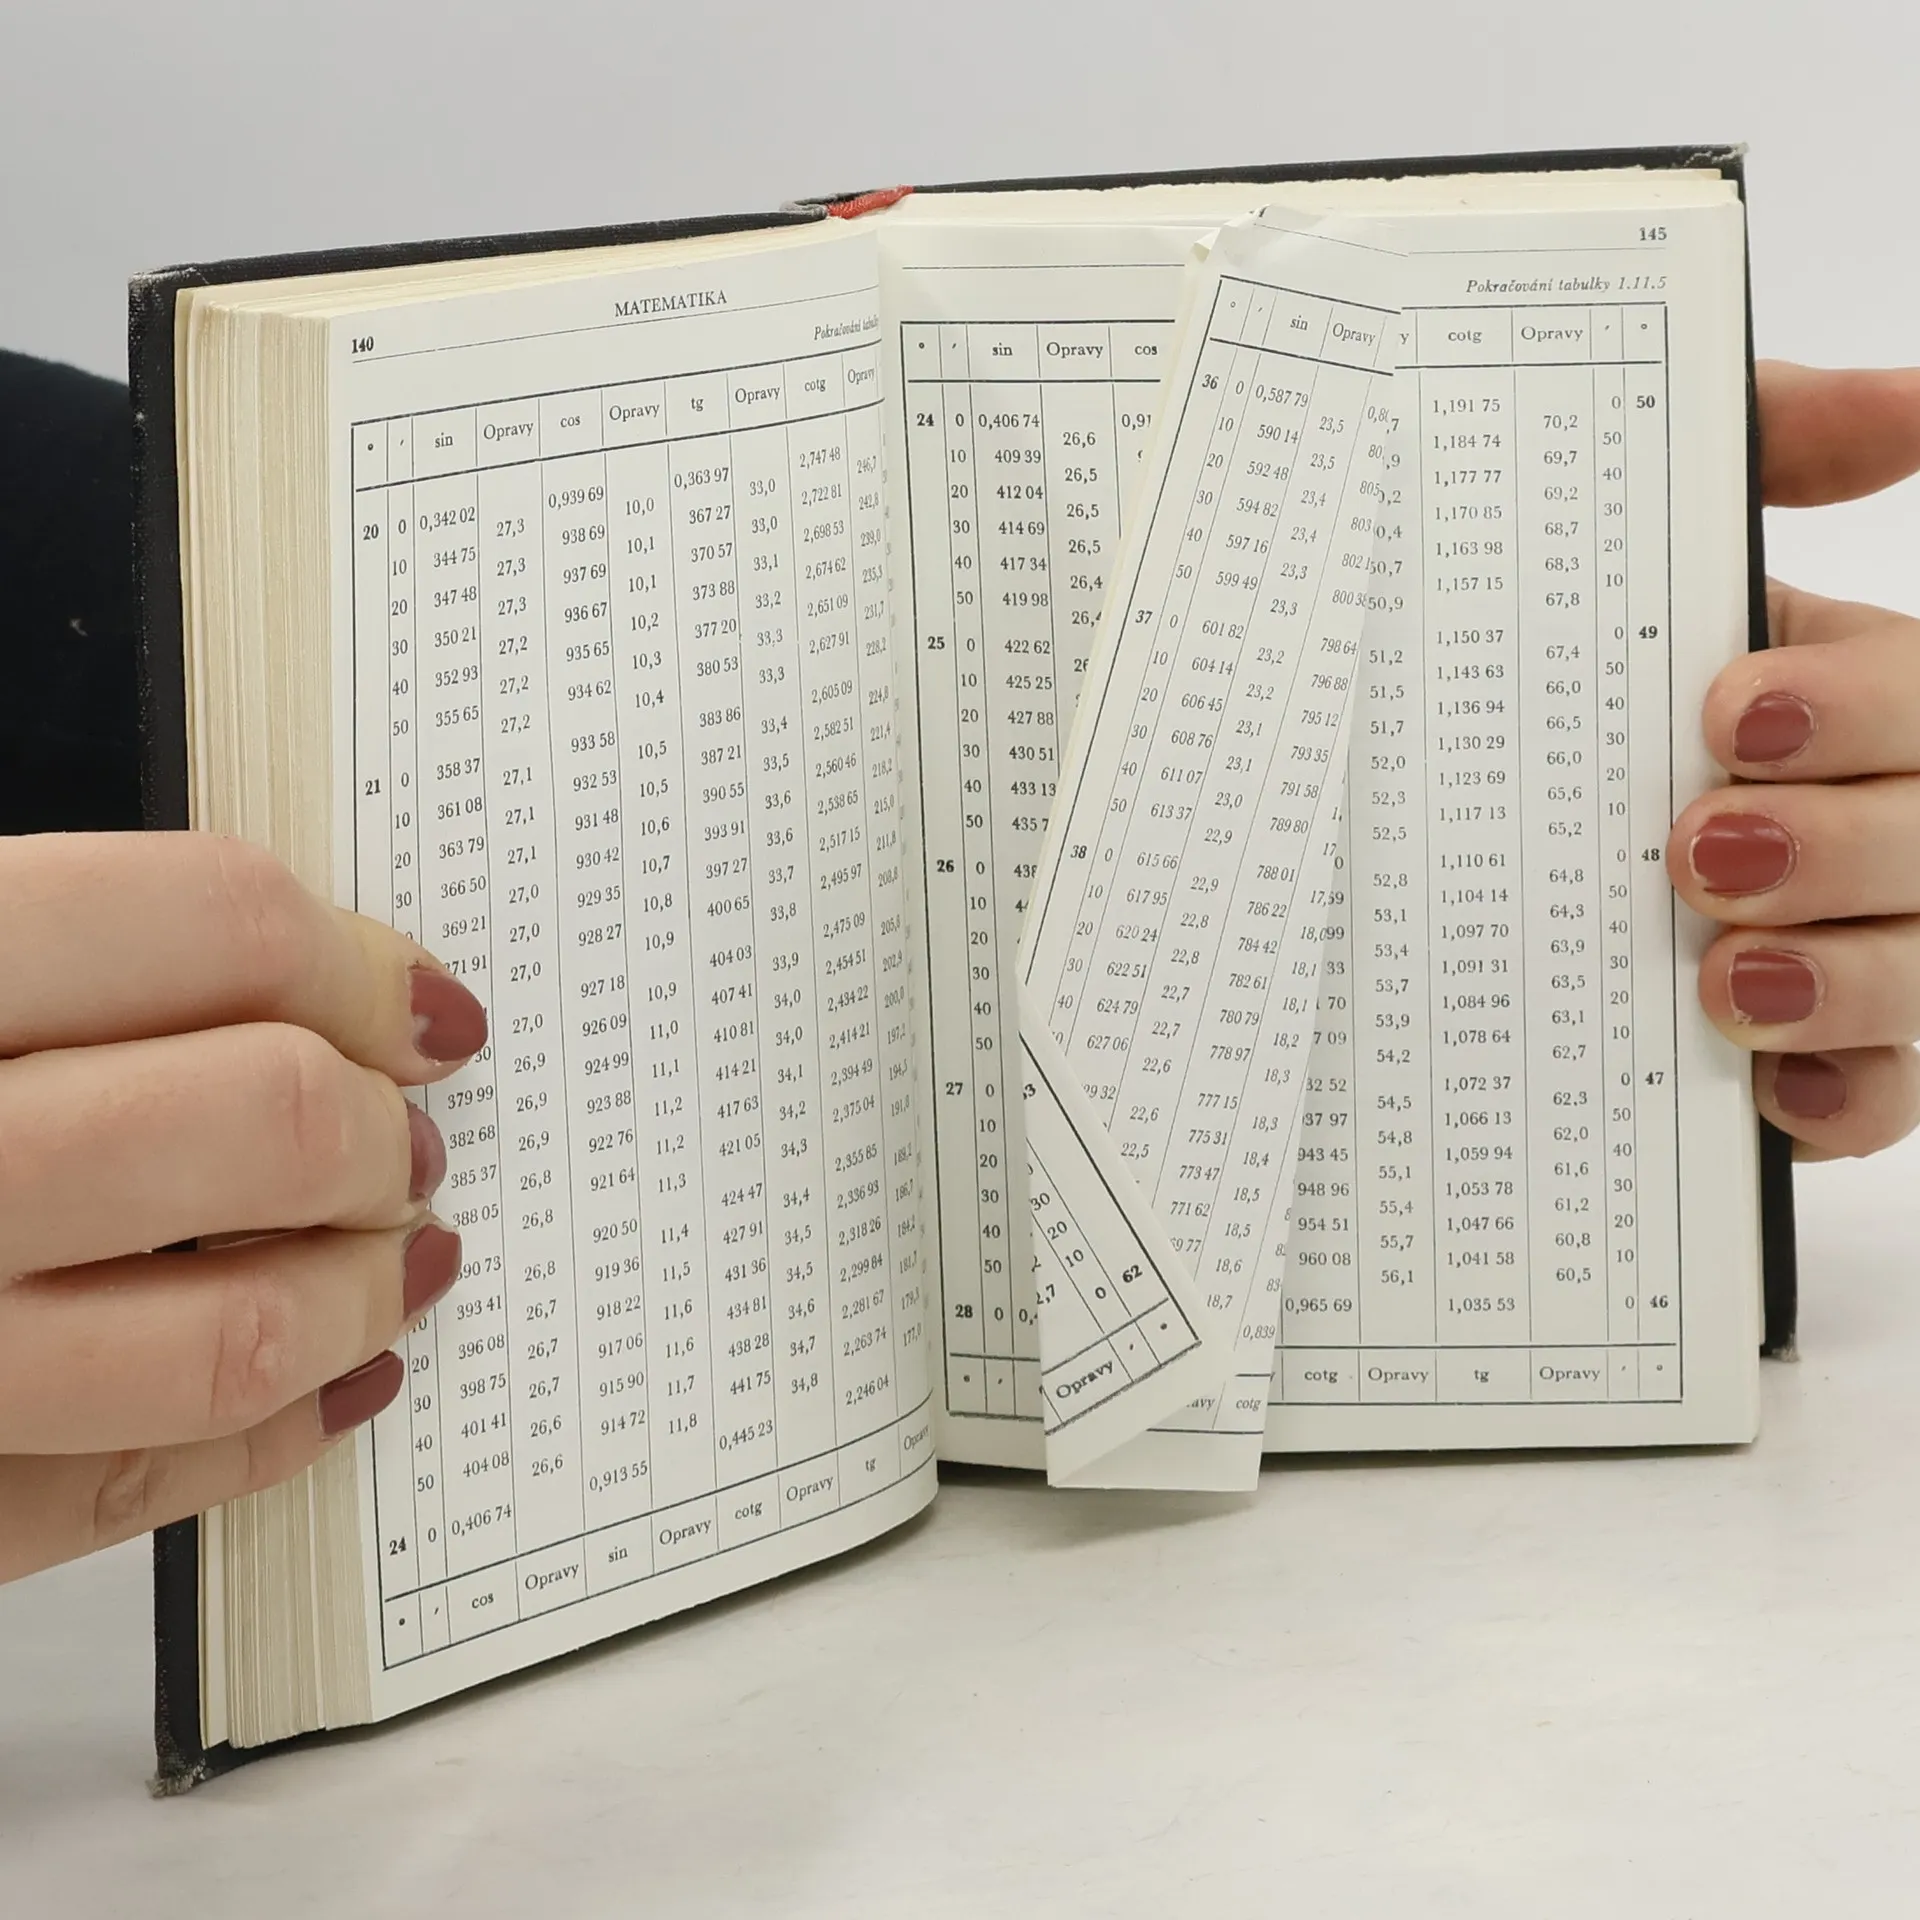 140 MATEMATIKA
Pokračování tabulky
° ′ sin Opravy cos Opravy tg Opravy cotg Opravy
20 0 0,342 02 27,3 0,939 69 10,0 0,363 97 33,0 2,747 48 246,7
10 344 75 27,3 938 69 10,1 367 27 33,0 2,722 81 242,8
20 347 48 27,3 937 69 10,1 370 57 33,1 2,698 53 239,0
30 350 21 27,2 936 67 10,2 373 88 33,2 2,674 62 235,3
40 352 93 27,2 935 65 10,3 377 20 33,3 2,651 09 231,7
50 355 65 27,2 934 62 10,4 380 53 33,3 2,627 91 228,2
21 0 358 37 27,1 933 58 10,5 383 86 33,4 2,605 09 224,8
10 361 08 27,1 932 53 10,5 387 21 33,5 2,582 51 221,4
20 363 79 27,1 931 48 10,6 390 55 33,6 2,560 46 218,2
30 366 50 27,0 930 42 10,7 393 91 33,6 2,538 65 215,0
369 21 27,0 929 35 10,8 397 27 33,7 2,517 15 211,8
371 91 27,0 928 27 10,9 400 65 33,8 2,495 97 208,8
27,0 927 18 10,9 404 03 33,9 2,475 09 205,8
26,9 926 09 11,0 407 41 34,0 2,454 51 202,9
379 99 26,9 924 99 11,1 410 81 34,0 2,434 22 200,0
382 68 26,9 923 88 11,2 414 21 34,1 2,414 21 197,2
385 37 26,8 922 76 11,2 417 63 34,2 2,394 49 194,5
388 05 26,8 921 64 11,3 421 05 34,3 2,375 04 191,8
390 73 26,8 920 50 11,4 424 47 34,4 2,355 85 189,2
393 41 26,7 919 36 11,5 427 91 34,5 2,336 93 186,7
20 396 08 26,7 918 22 11,6 431 36 34,5 2,318 26 184,2
30 398 75 26,7 917 06 11,6 434 81 34,6 2,299 84 181,7
40 401 41 26,6 915 90 11,7 438 28 34,7 2,281 67 179,3
50 404 08 26,6 914 72 11,8 441 75 34,8 2,263 74 177,0
24 0 0,406 74 0,913 55 0,445 23 2,246 04
° ′ cos Opravy sin Opravy cotg Opravy tg Opravy
° ′ sin Opravy cos
24 0 0,406 74 26,6 0,91
10 409 39 26,5
20 412 04 26,5
30 414 69 26,5
40 417 34 26,4
50 419 98 26,4
25 0 422 62
10 425 25
20 427 88
30 430 51
40 433 13
50 435 7
26 0 438
10
20
30
40
50
27 0
10
20
30
40
50
28 0
° ′
° ′ sin Opravy
36 0 0,587 79 23,5
10 590 14 23,5
20 592 48 23,4
30 594 82 23,4
40 597 16 23,3
50 599 49 23,3
37 0 601 82 23,2 798 64
10 604 14 23,2 796 88
20 606 45 23,1 795 12
30 608 76 23,1 793 35
40 611 07 23,0 791 58
50 613 37 22,9 789 80
38 0 615 66 22,9 788 01
10 617 95 22,8 786 22
20 620 24 22,8 784 42 18,0
30 622 51 22,7 782 61 18,1
40 624 79 22,7 780 79 18,1
627 06 22,6 778 97 18,2
22,6 777 15 18,3
22,5 775 31 18,3
773 47 18,4
771 62 18,5
18,5
18,6
18,7
0,839
cotg
30
20
10
0 62
Opravy ′ °
145
Pokračování tabulky 1.11.5
cotg Opravy ′ °
1,191 75 70,2 0 50
1,184 74 69,7 50
1,177 77 69,2 40
1,170 85 68,7 30
1,163 98 68,3 20
50,9 1,157 15 67,8 10
51,2 1,150 37 67,4 0 49
51,5 1,143 63 66,0 50
51,7 1,136 94 66,5 40
52,0 1,130 29 66,0 30
52,3 1,123 69 65,6 20
52,5 1,117 13 65,2 10
52,8 1,110 61 64,8 0 48
53,1 1,104 14 64,3 50
53,4 1,097 70 63,9 40
53,7 1,091 31 63,5 30
53,9 1,084 96 63,1 20
54,2 1,078 64 62,7 10
54,5 1,072 37 62,3 0 47
54,8 1,066 13 62,0 50
943 45 55,1 1,059 94 61,6 40
948 96 55,4 1,053 78 61,2 30
954 51 55,7 1,047 66 60,8 20
960 08 56,1 1,041 58 60,5 10
0,965 69 1,035 53 0 46
cotg Opravy tg Opravy ′ °